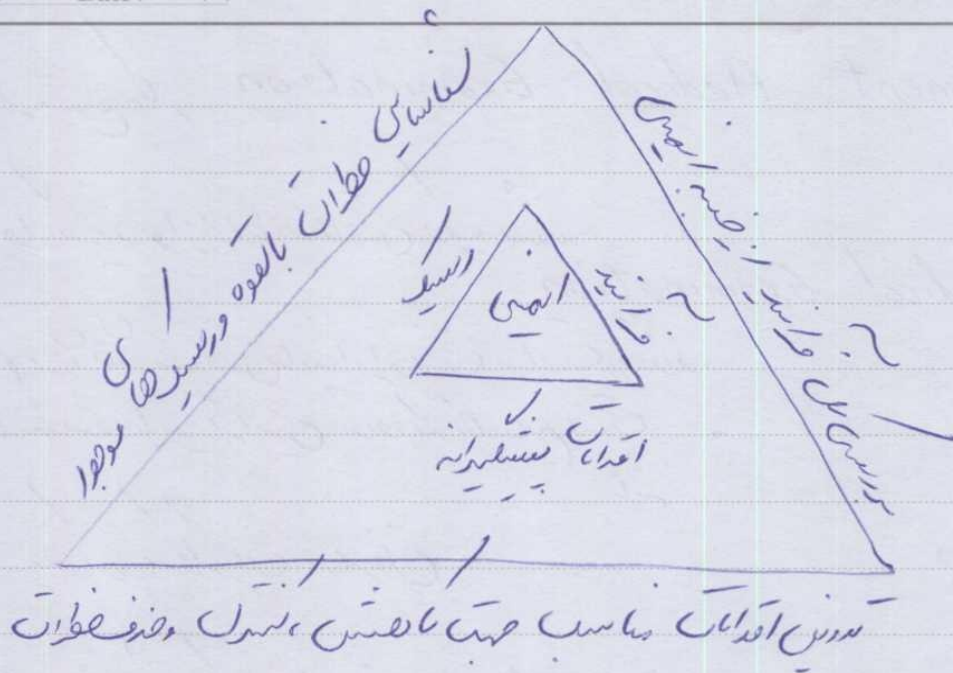 شناسایی خطرات بالقوه و ریسک‌های موجود
بررسی کل فرآیند از جنبه ایمنی
ریسک
فرآیند
ایمنی
اقدامات
پیشگیرانه
تدوین اقدامات مناسب جهت کاهش، کنترل و حذف خطرات